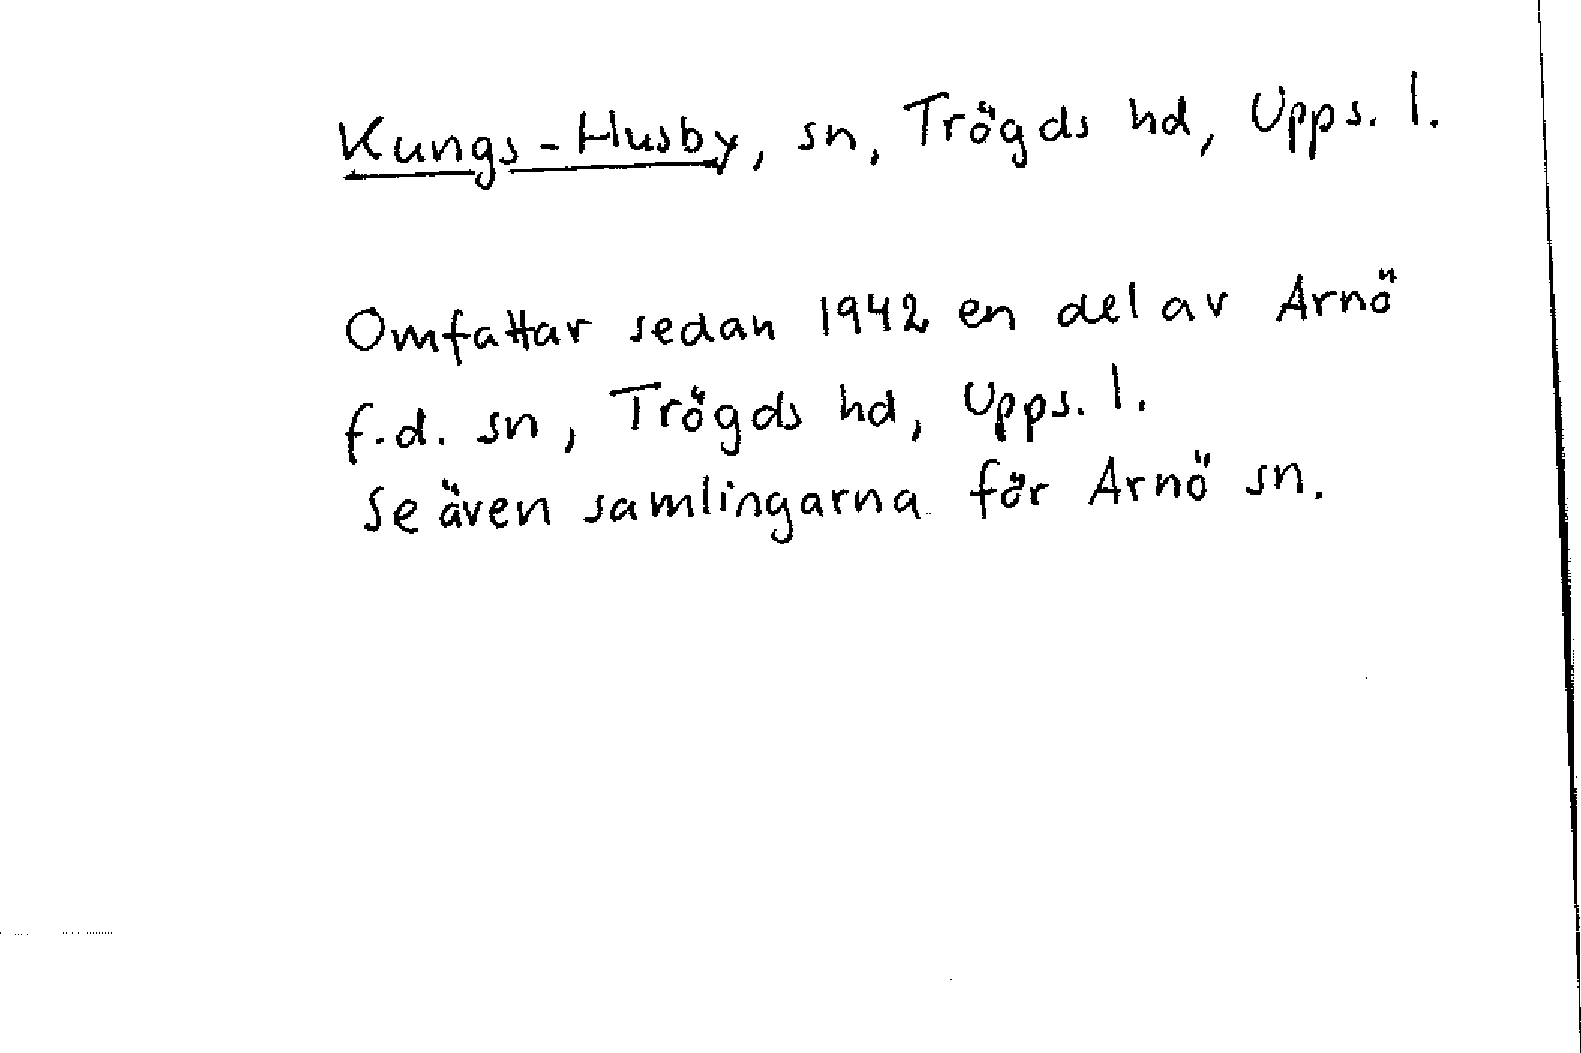 Kungs-Husby, sn, Trögds hd, Upps. l.
Omfattar sedan 1942 en del av Arnö
f.d. sn, Trögds hd, Upps. l.
Se även samlingarna för Arnö sn.